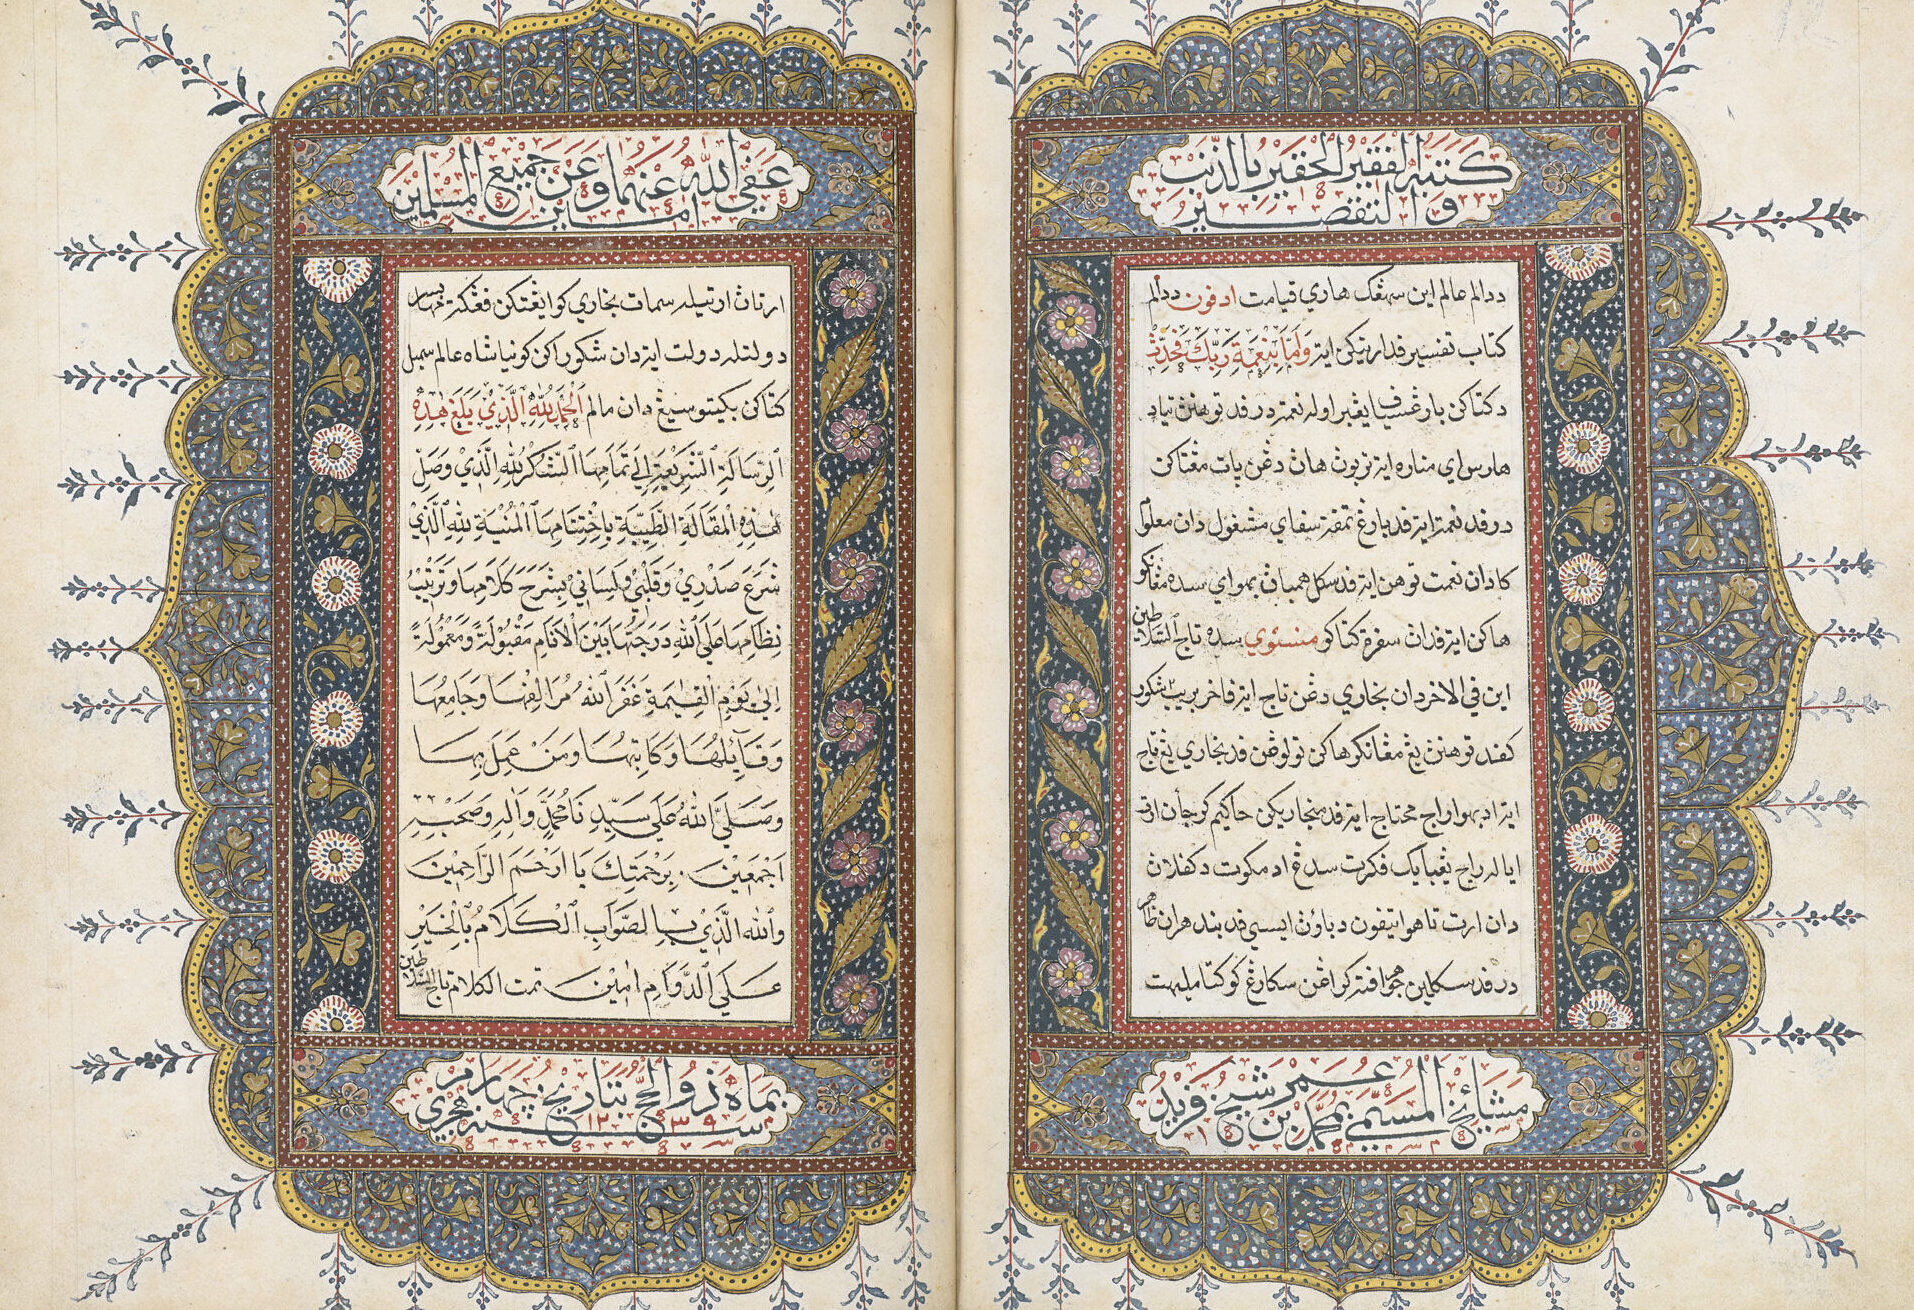 كتبه الفقير الحقير بالذنب
والتقصير
ددالم عالم اين سهڠݢ هاري قيامت ادفون ددالم
كتاب تفسير فد ارتيكن ايت وَأَمَّا بِنِعْمَةِ رَبِّكَ فَحَدِّثْ
دكتاكن بارڠسياف ايڠبر اوله نعمة در فد توهنڽ تياد
هاروس اي مناره ايت
درفد نعمة ايت فد بارڠ تمفت سفاي مشغول دان معلوم
كادان نعمت توهن ايت فد سكل همباڽ بهوا اي سده مڠانكر
هاكن ايت فدان سفرة كتاكو منسئوي سده تاج السلاطين
اين في الاخر دان بخاري دڠن تاج ايت فاخر بريب٢ شكور
كفد توهنڽ يڠ مڠانكرهاكن تولوڠن فد بخاري يڠ تاج
ايت اد بهوا راج محتاج ايت فد بخاري كن حاكيم كرجاءن ارت
ايله راج يڠ بايك فكرت سدڠ اد مكوت دكفلاڽ
دان ارت تاهو اتيفون دباوڽ ايسي فد بندهران ظاهر
درفد سكلين جوهر افت كراڠن سكارڠ كو كتاميله٢
مشايخ المسمى بمحمد بن عمر شيخ فريد
عفى الله عنهما وعن جميع المسلمين
امين
ارتاڽ ارتيله سمات بخاري كو ايڠتكن فڠكت
دولتله دولت ايت دان شكور اكن كورنيا شاه عالم سمبل
كتاكن بݢيتو سيڠ دان مالم اَلْحَمْدُ لِلّٰهِ الَّذِي بَلَغَ هٰذِهِ
الرِّسَالَةَ الشَّرِيفَةَ إِلَى تَمَامِهَا الشُّكْرُ لِلّٰهِ الَّذِي وَصَلَ
هٰذِهِ الْمَقَالَةَ الطَّيِّبَةَ بِاخْتِتَامِهَا الْمُنْيَةُ لِلّٰهِ الَّذِي
شَرَحَ صَدْرِي وَقَلْبِي وَلِسَانِي بِشَرْحِ كَلَامِهَا وَتَرْتِيْبُ
نِظَامِهَا عَلَى اللهِ دَرَجَتُهَا بَيْنَ الْأَنَامِ مَقْبُولَةً وَمَعْمُولَةً
إِلَى يَوْمِ الْقِيٰمَةِ غَفَرَ اللهُ مُؤَلِّفَهَا وَجَامِعُهَا
وَقَائِلُهَا وَكَاتِبُهَا وَمَنْ عَمِلَ بِهَا
وَصَلَّى اللهُ عَلَى سَيِّدِنَا مُحَمَّدٍ وَآلِهِ وَصَحْبِهِ
أَجْمَعِيْنَ. بِرَحْمَتِكَ يَا أَرْحَمَ الرَّاحِمِيْنَ
وَاللهِ الَّذِي بِالصَّوَابِ الْكَلَامُ بِالْخَيْرِ
عَلَى الدَّوَامِ اٰمِيْنَ تمت الكلام تاج السلاطين
بماه ذو الحج بتاريخ چهارم
سنه ١٢٣٩ هجري